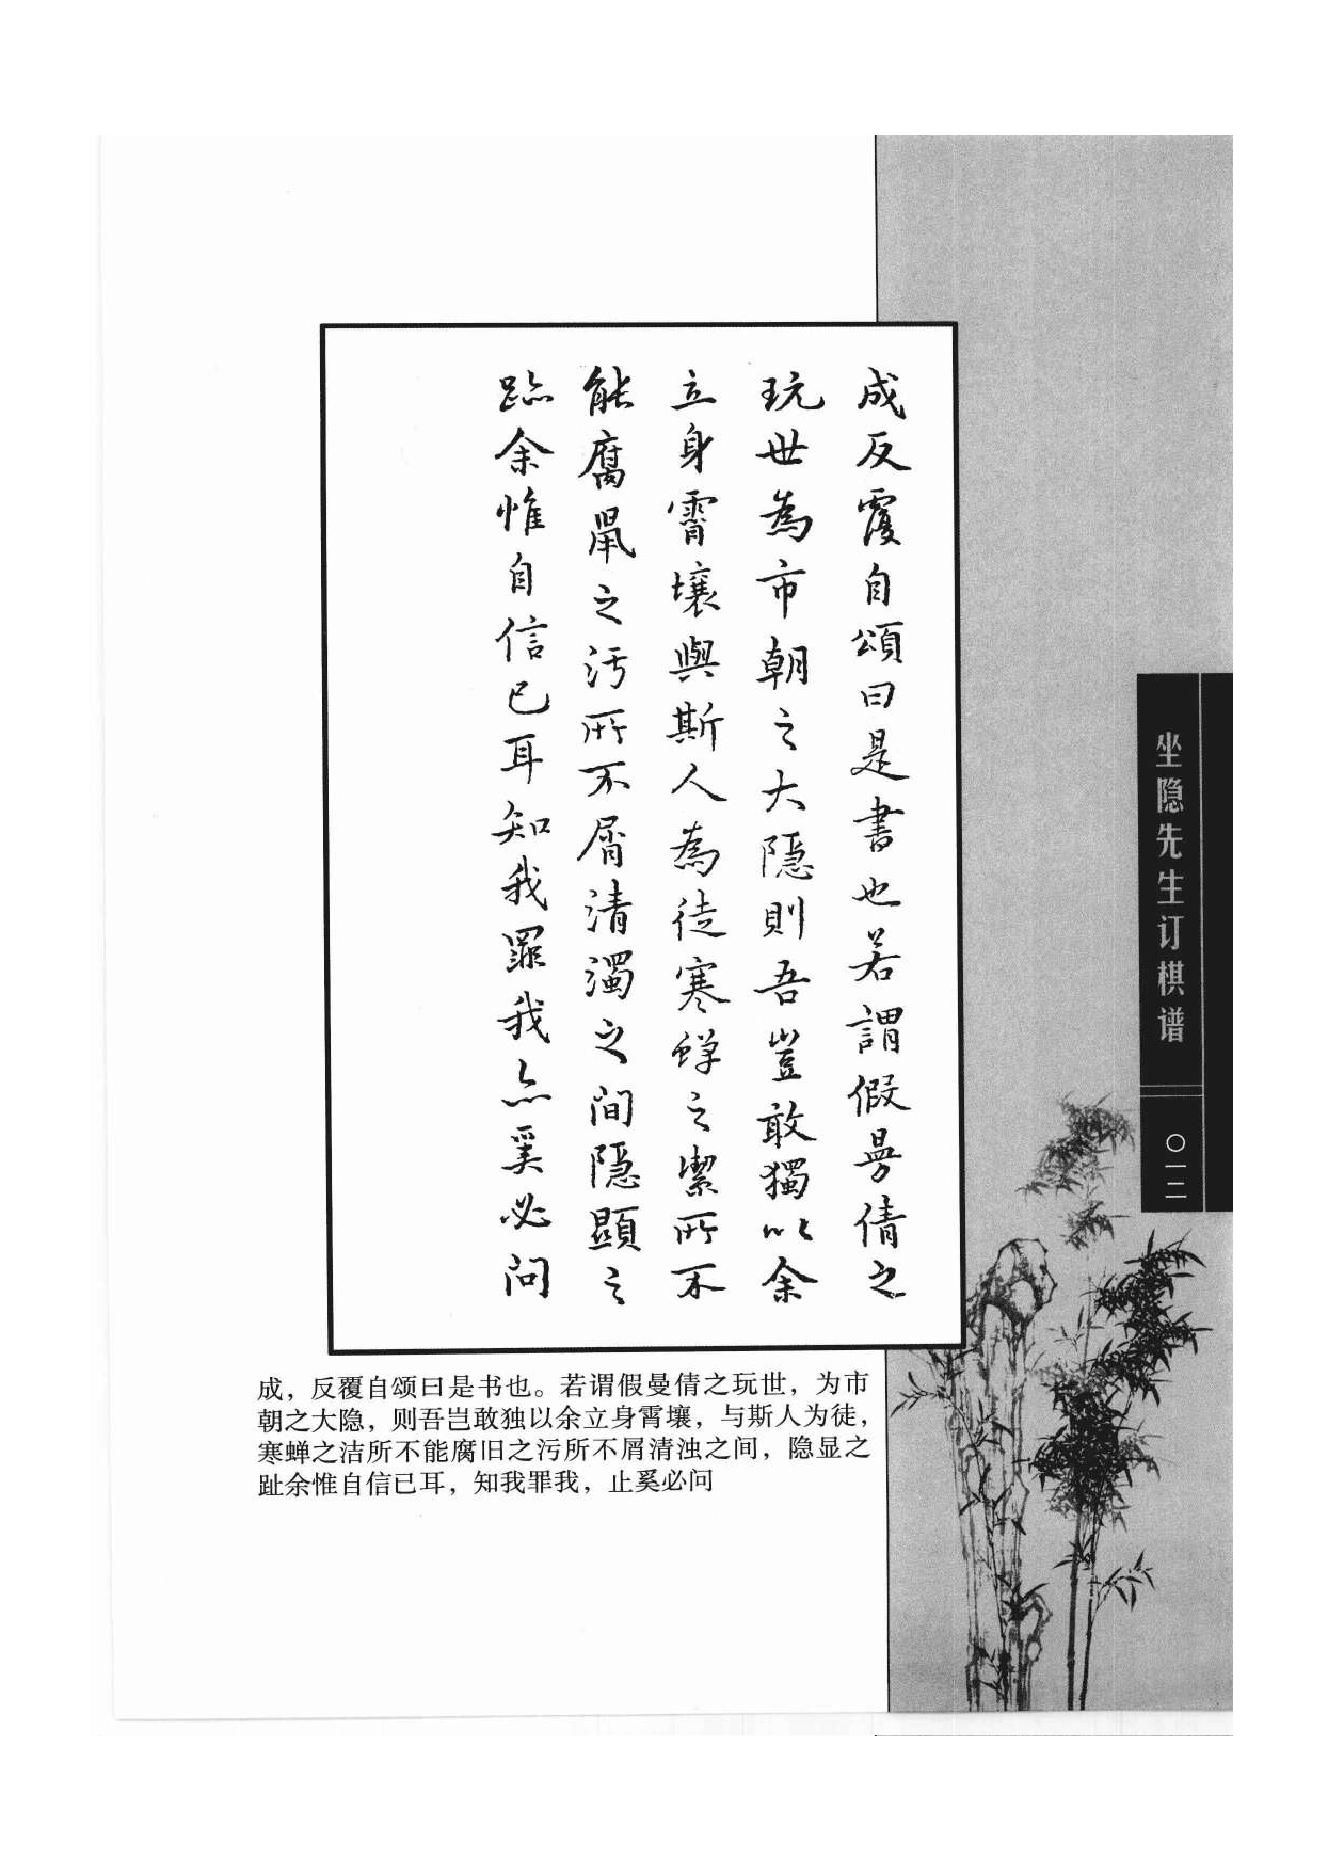 成反覆自頌曰是書也若謂假曼倩之
玩世為市朝之大隱則吾豈敢獨以余
立身霄壤與斯人為徒寒蟬之潔所不
能腐鼠之污所不屑清濁之間隱顯之
跡余惟自信已耳知我罪我亦奚必問
成，反覆自颂曰是书也。若谓假曼倩之玩世，为市
朝之大隐，则吾岂敢独以余立身霄壤，与斯人为徒，
寒蝉之洁所不能腐旧之污所不屑清浊之间，隐显之
趾余惟自信已耳，知我罪我，止奚必问
坐隐先生订棋谱
〇一二